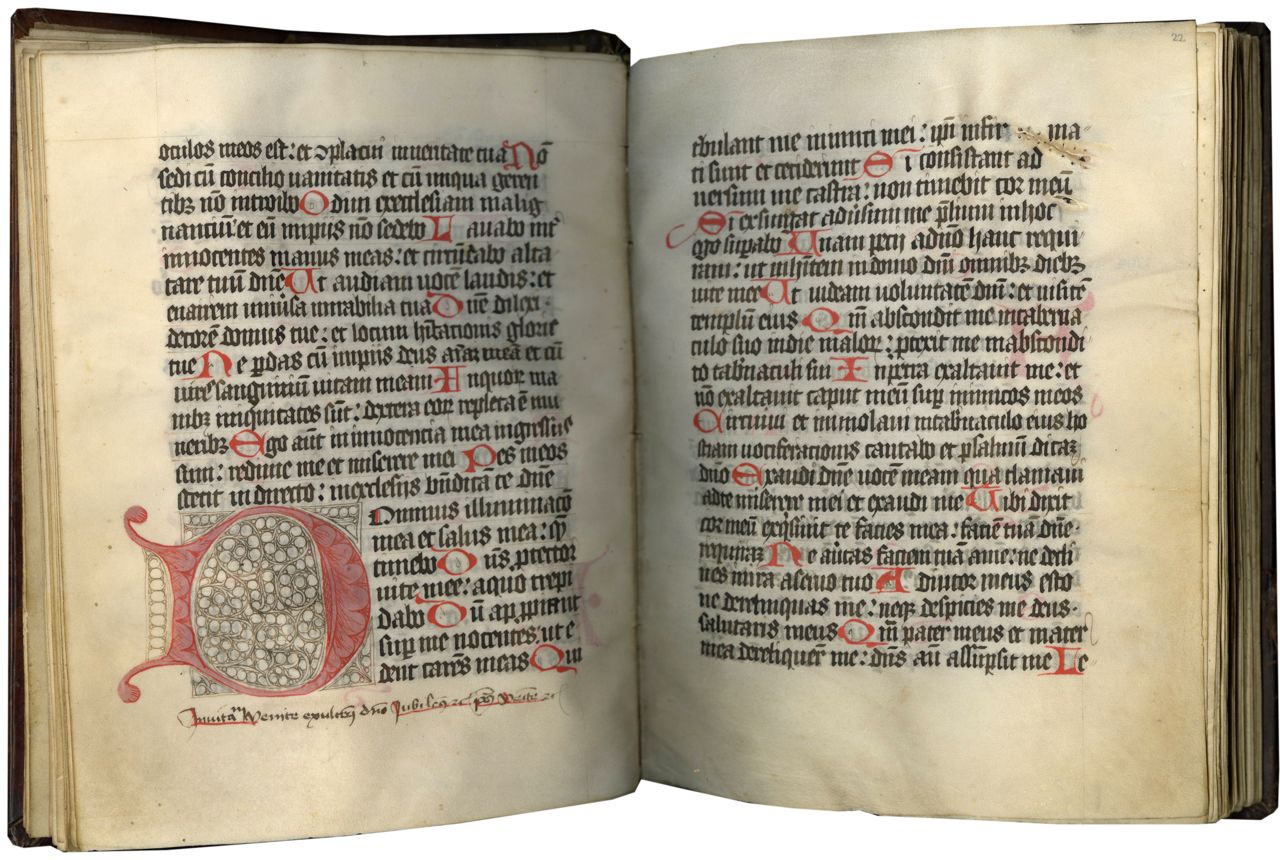 oculos meos est: et ꝯplacui in veritate tua No
sedi cū concilio vanitatis et cū iniqua geren
tibꝫ nō introibo Odiui ecclesiam malig
nanciū et cū impiis nō sedebo Lavabo int̄
innocentes manus meas: et circūdabo alta
tare tuū dn̄e Ut audiam vocē laudis: et
enarrem univ̄sa mirabilia tua Dn̄e dilexi
decorē domus tue: et locum hītationis glorie
tue Ne ꝑdas cū impiis deus aīam meā et cū
viris sanguinum vitam meam In quoꝝ ma
nibꝫ iniquitates sūt: dextera eoꝝ repleta ē mu
neribꝫ Ego aūt in innocencia mea ingressus
sum: redime me et miserere mei Pes meus
stetit in directo: in ecclesiis bn̄dicā te dn̄e
Dominus illuminacō
mea et salus mea: quē
timebo Dn̄s ꝓtector
vite mee: a quo trepi
dabo Dū appropiant
suꝑ me nocentes: ut e
dent carnes meas Qui
Invitat̄ Venite exultem̄ dn̄o Jubilem̄ ps Venite
22
tribulant me inimici mei: ip̄i infir ma
ti sunt et ceciderunt Si consistant ad
versum me castra: non timebit cor meū
Si exsurgat adv̄sum me p̄lium in hoc
ego sꝑabo Unam pecii a dn̄o hanc requi
ram: ut inhītem in domo dn̄i omnibꝫ diebꝫ
vite mee Ut videam voluntatē dn̄i: et visitē
templū eius Qm̄ abscondit me in taberna
culo suo in die maloꝝ: ꝓtexit me in abscondi
to tab̄naculi sui In petra exaltavit me: et
nō exaltavit caput meū suꝑ inimicos meos
Circuivi et immolavi in tab̄naculo eius ho
stiam vociferacionis cantabo et psalmū dicaꝫ
dn̄o Exaudi dn̄e vocē meam qua clamavi
ad te miserere mei et exaudi me Tibi dixit
cor meū exq̄sivit te facies mea: faciē tuā dn̄e
requiraꝫ Ne av̄tas faciem tuā a me: ne decli
nes in ira a servo tuo Adiutor meus esto
ne derelinquas me: neqꝫ despicies me deus
salutaris meus Qm̄ pater meus et mater
mea dereliquer̄t me: dn̄s aūt assūpsit me Le